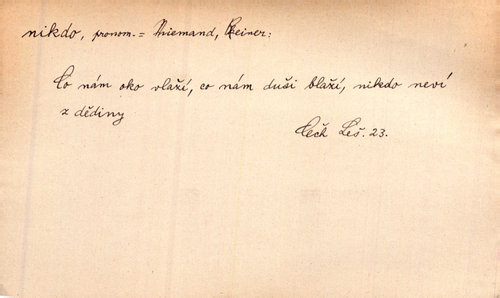 nikdo, pronom. = Niemand, Keiner:
Co nám oko vlaží, co nám duši blaží, nikdo neví
z dědiny
Čech Leš. 23.